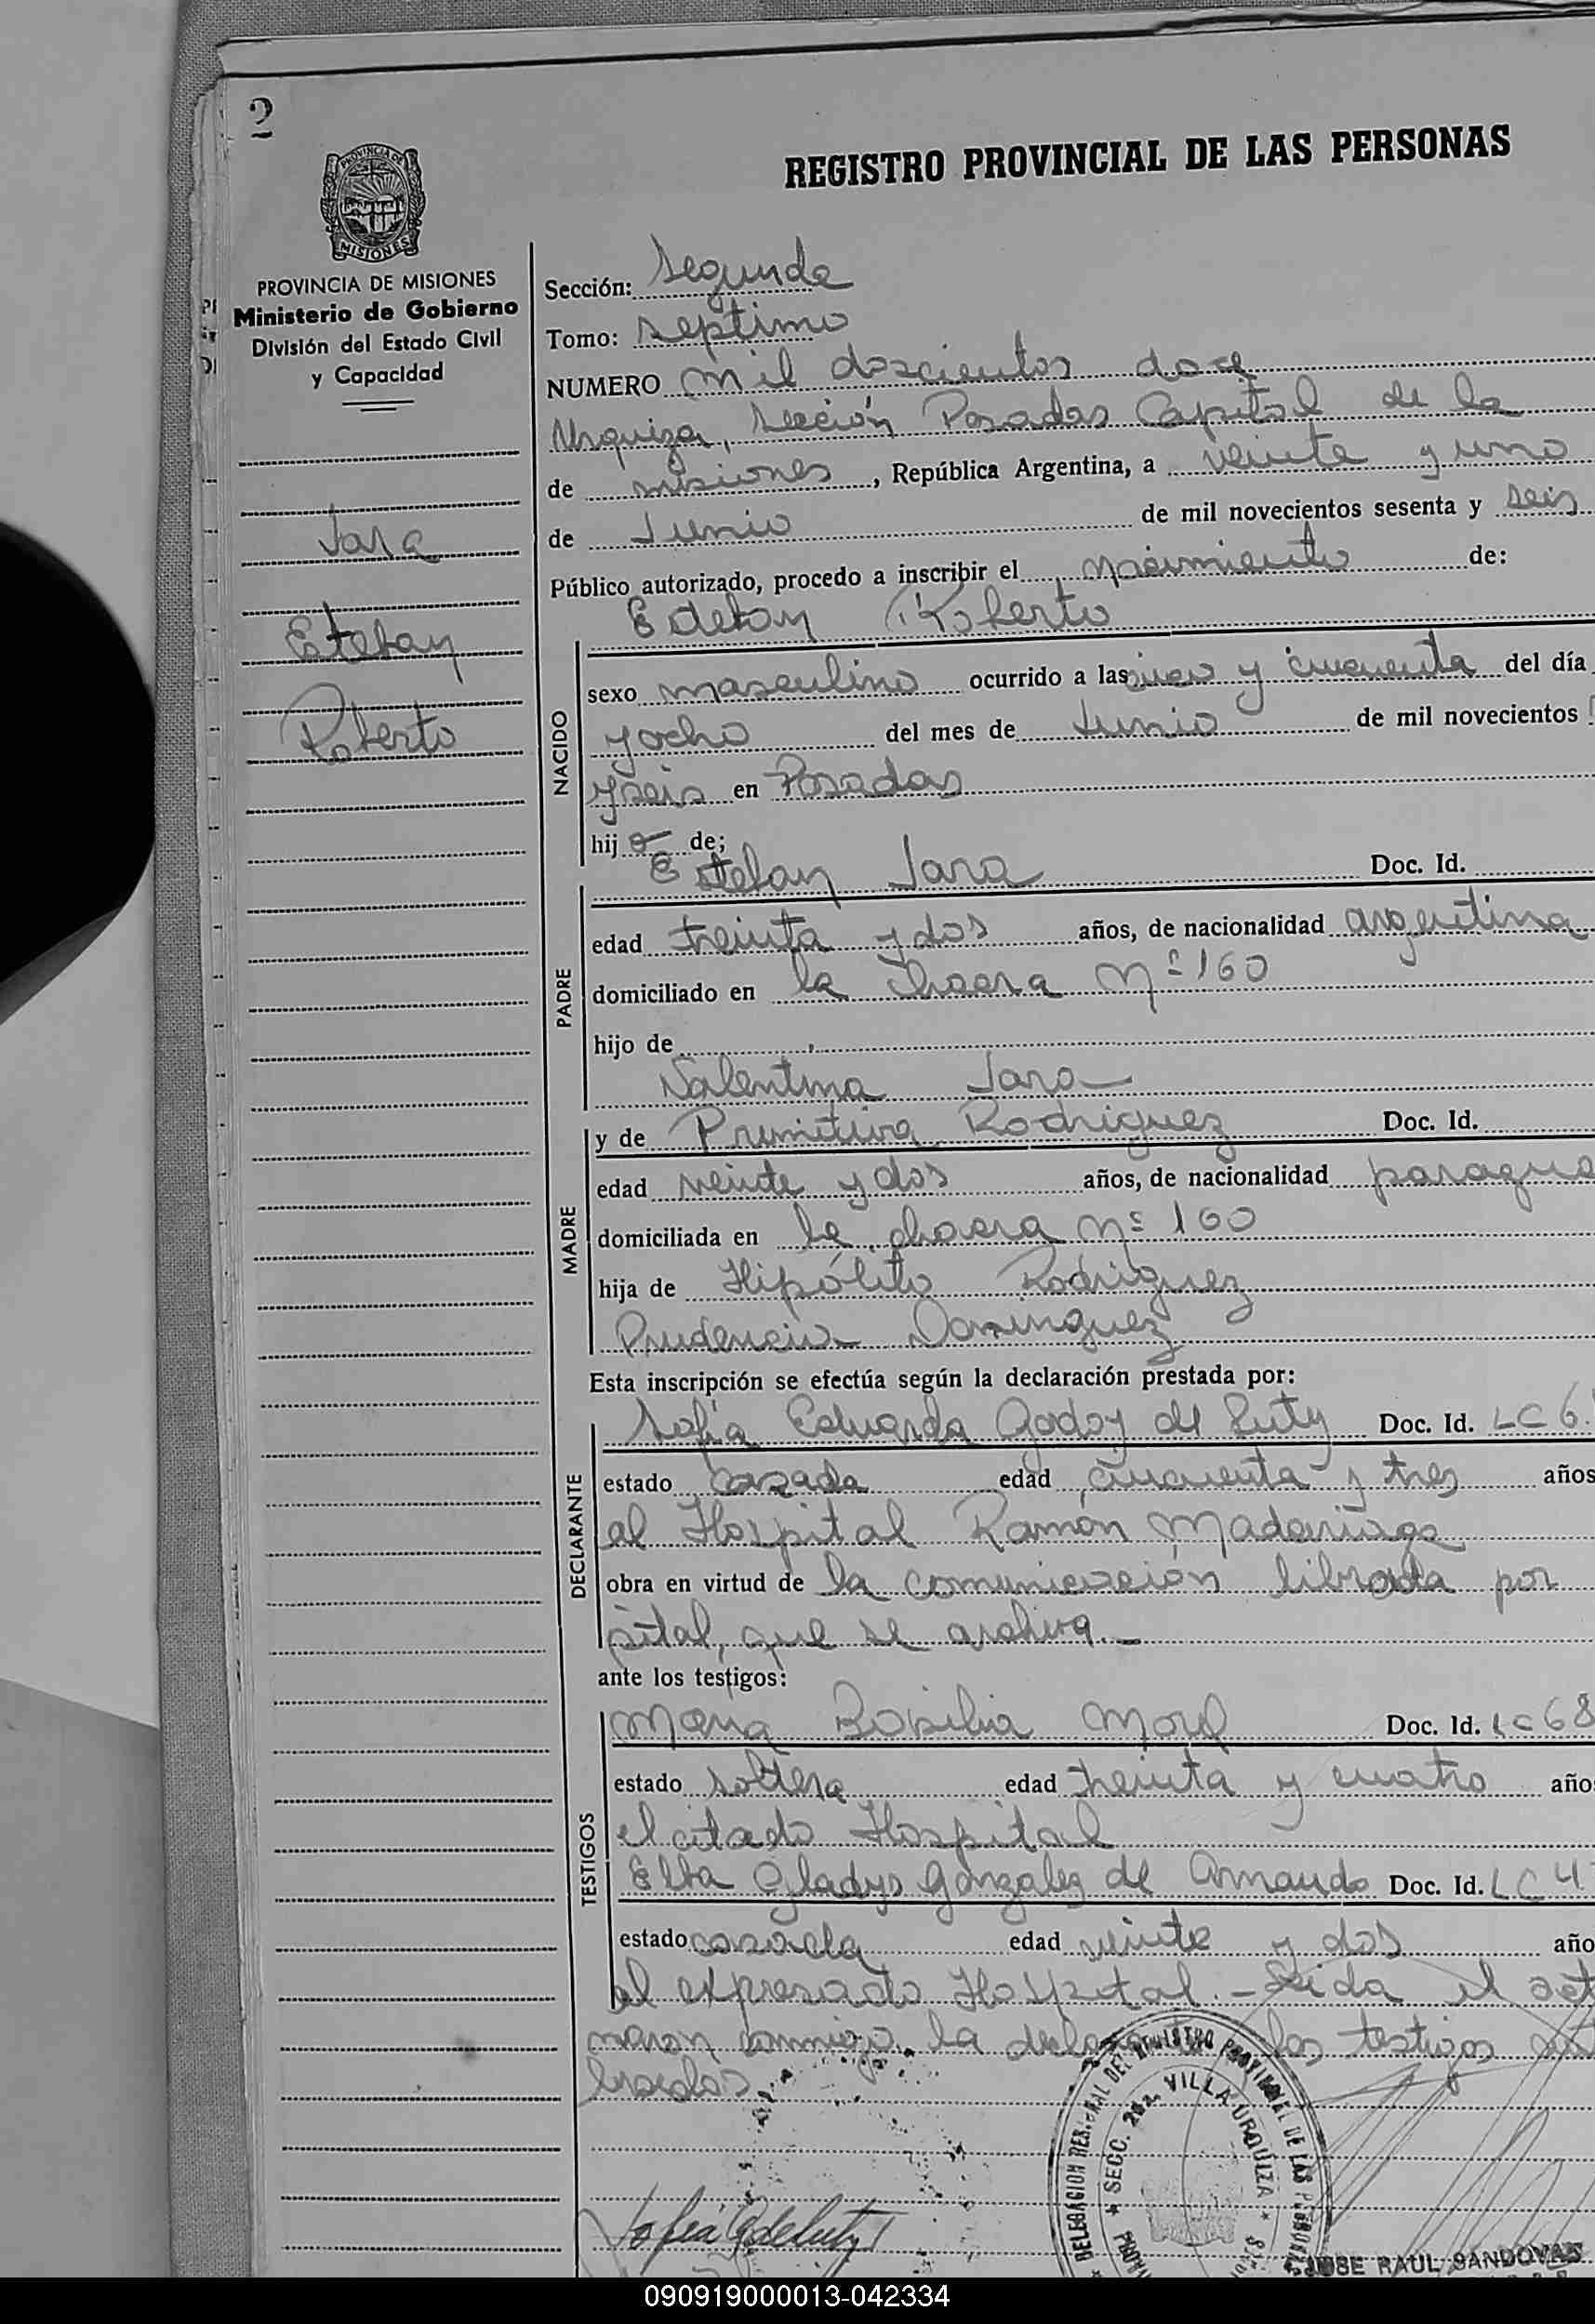 2
REGISTRO PROVINCIAL DE LAS PERSONAS
PROVINCIA DE
MISIONES
PROVINCIA DE MISIONES
Ministerio de Gobierno
División del Estado Civil
y Capacidad
Jara
Esteban
Roberto
Sección: Segunda
Tomo: Septimo
NUMERO mil doscientos doce
Urquiza, Sección Posadas Capital de la
de misiones, República Argentina, a veinte y uno
de Junio de mil novecientos sesenta y seis
Público autorizado, procedo a inscribir el nacimiento de:
Esteban Roberto
NACIDO
sexo masculino ocurrido a las y cincuenta del día
y ocho del mes de Junio de mil novecientos
y seis en Posadas
hijo de;
PADRE
Esteban Jara Doc. Id.
edad treinta y dos años, de nacionalidad argentina
domiciliado en la chacra Nº 160
hijo de
Valentina Jara
MADRE
y de Primitiva Rodriguez Doc. Id.
edad veinte y dos años, de nacionalidad paragua
domiciliada en la chacra Nº 160
hija de Hipólito Rodriguez
Prudencia Dominguez
Esta inscripción se efectúa según la declaración prestada por:
DECLARANTE
Sofía Eduarda Godoy de Luty Doc. Id. LC 6
estado casada edad cincuenta y tres años
al Hospital Ramón Madariaga
obra en virtud de la comunicación librada por
pital, que se archiva.-
ante los testigos:
TESTIGOS
Doc. Id. LC 68
estado soltera edad treinta y cuatro año
el citado Hospital
Elba Gladys Gonzalez de Armando Doc. Id. LC 4
estado casada edad veinte y dos año
al expresado Hospital.- Leida el act
maron conmigo, la declarante los testigos
brados
DELEGACION DEL REGISTRO PROVINCIAL DE LAS PERSONAS
SECC. 2da. VILLA URQUIZA
JOSE RAUL SANDOVAL
090919000013-042334